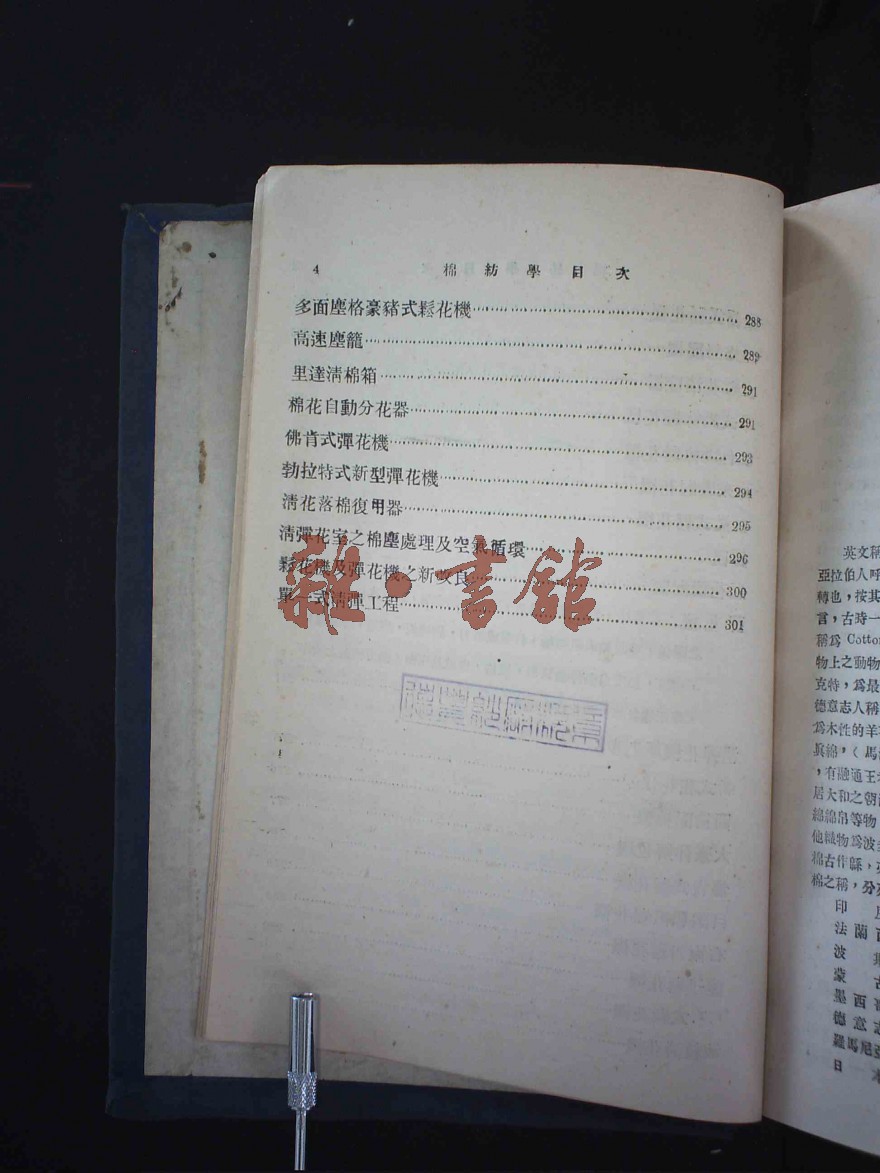 4 棉紡學目次
多面塵格豪豬式鬆花機 288
高速塵籠 289
里達淸棉箱 291
棉花自動分花器 291
佛肯式彈花機 293
勃拉特式新型彈花機 294
淸花落棉復用器 295
淸彈花室之棉塵處理及空氣循環 296
鬆花機及彈花機之新改良 300
單一式淸彈工程 301
雜·書館
英文稱
亞拉伯人呼
轉也，按其
言，古時一
稱爲 Cotto
物上之動物
克特，爲最
德意志人稱
爲木性的羊
眞綿，（馬
，有融通王
居大和之朝
綿綿帛等物
他織物爲波
棉古作
棉之稱，分
印
法蘭西
波
蒙古
墨西
德意志
羅馬尼亞
日本